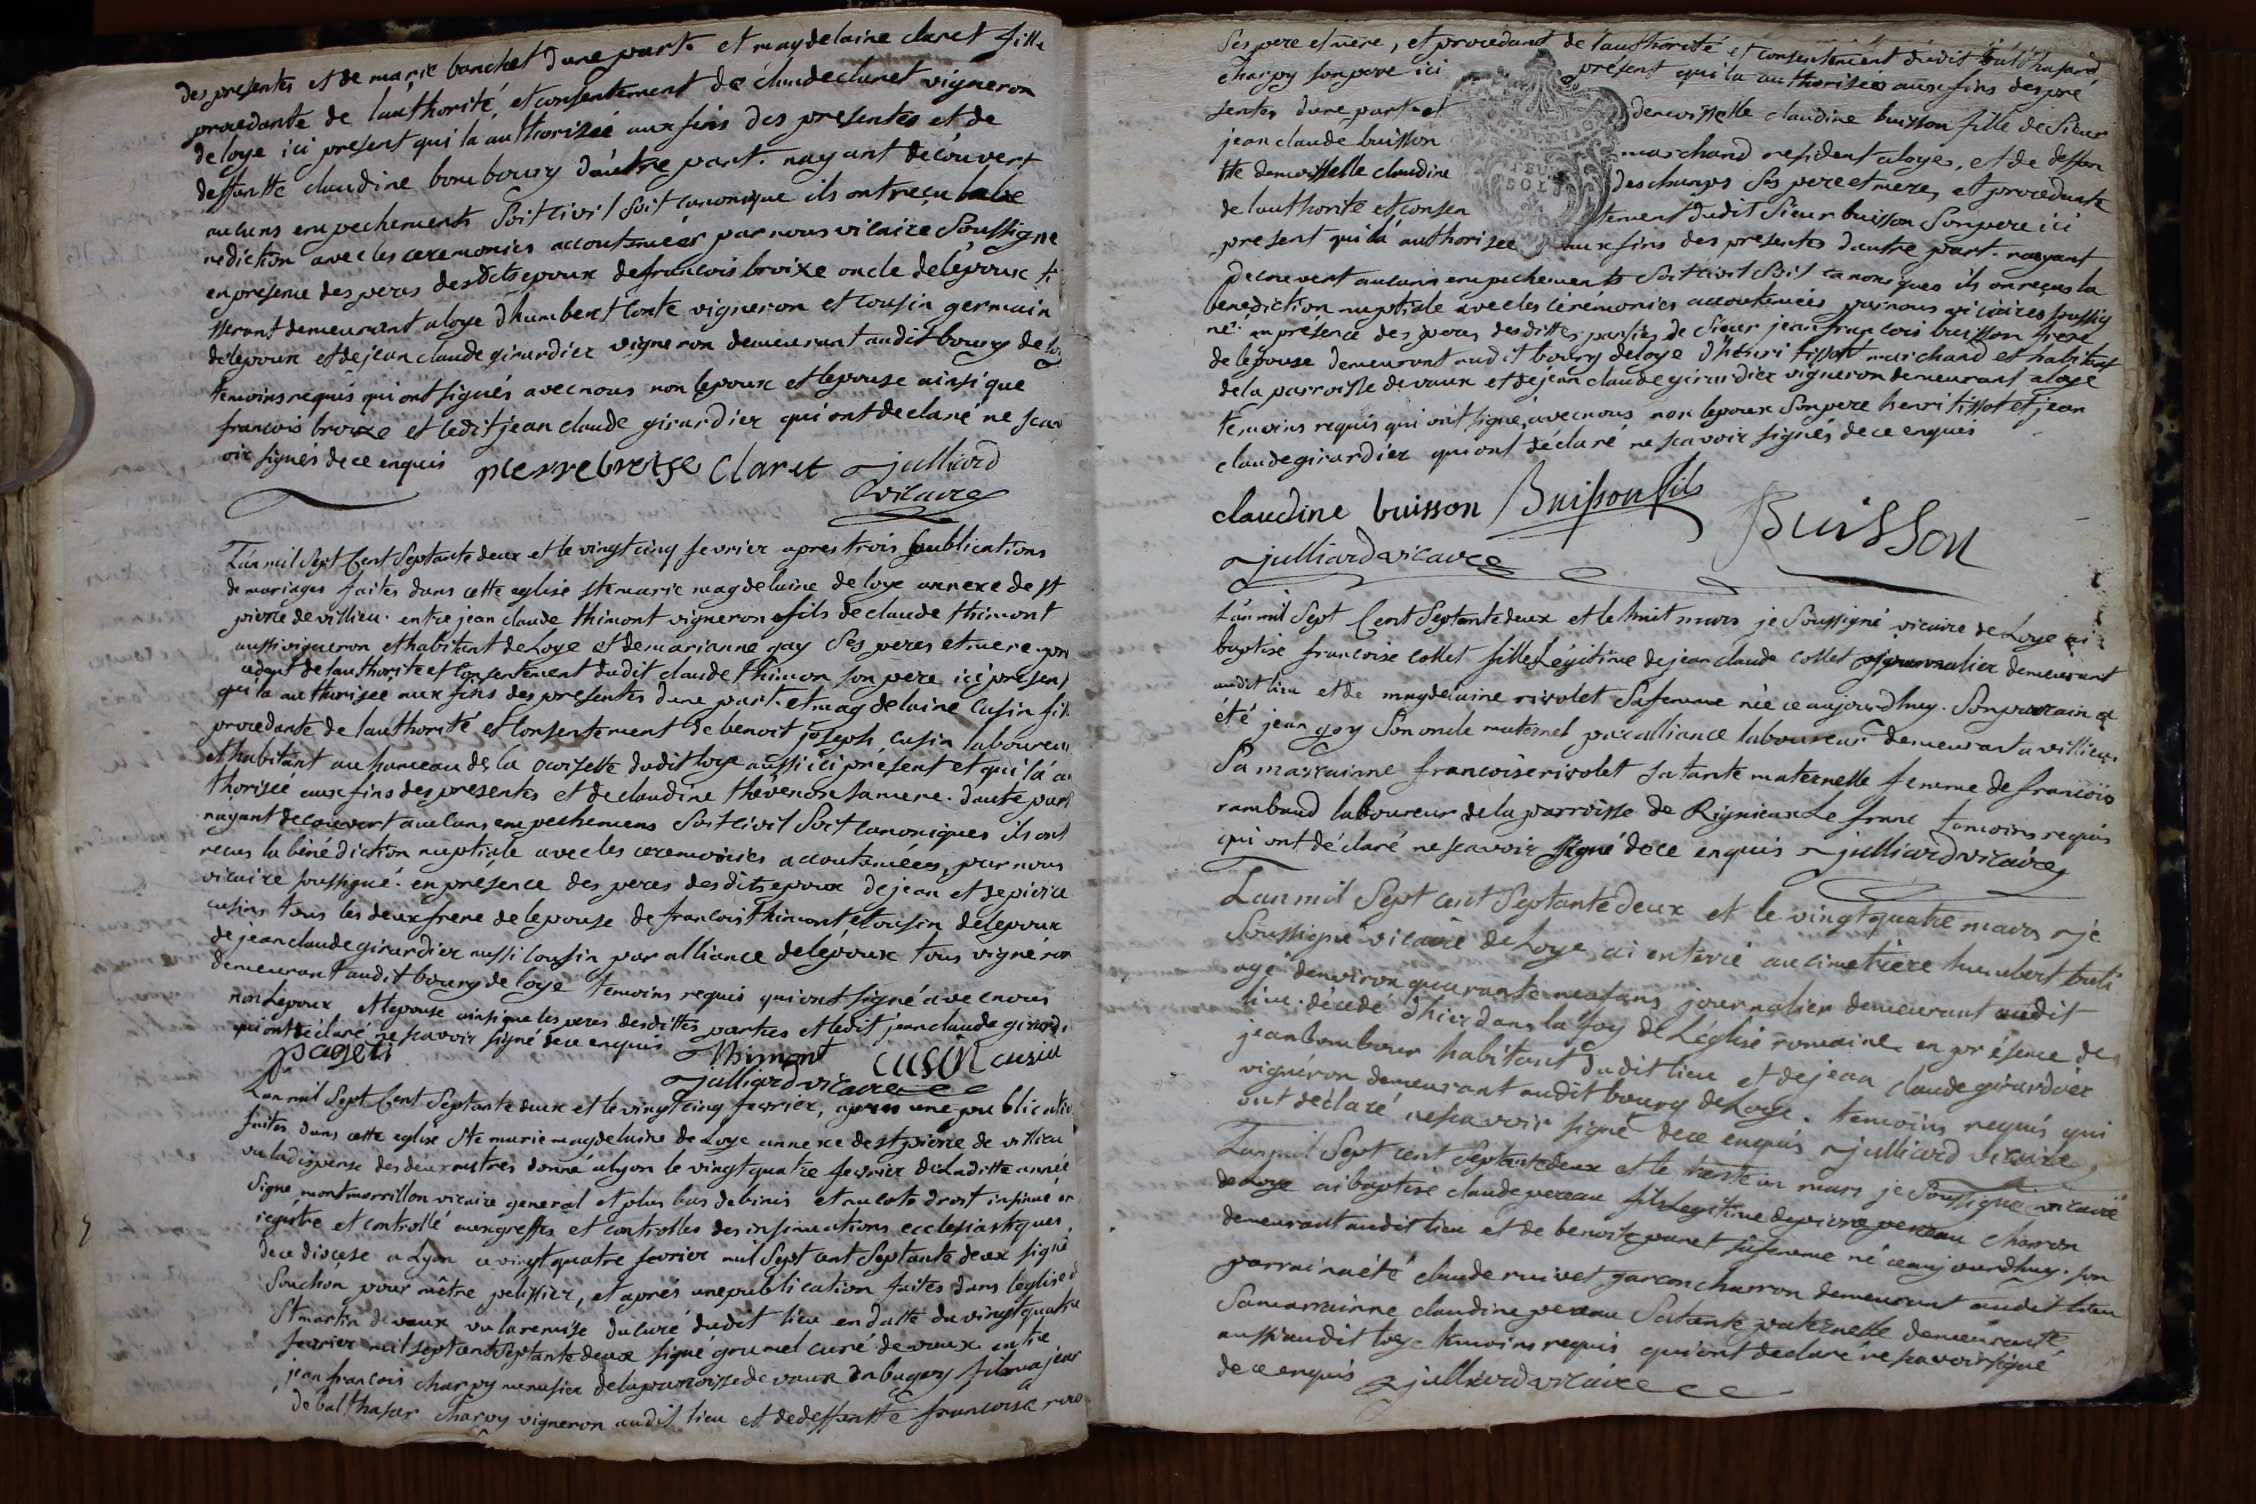 des presentes et de marie banchet d'une part. et magdelaine claret fille
procedante de lauthorité, et consentement de claude claret vigneron
de loye ici present qui la authorisée aux fins des presentes et de
deffuntte claudine bombourg d'autre part. nayant découvert
aucuns empechements soit civil soit canonique ils ont reçu la bé
nediction avec les ceremonies accoutumées par nous vicaire soussigne
en présence des peres desdits epoux de francois broixe oncle de lepoux ti
sserant demeurant a loye d'humbert conte vigneron et cousin germain
de lepoux et de jean claude girardier vigneron demeurant audit bourg de lo
temoins requis qui ont signés avec nous non lepoux et lepouse ainsi que
francois broixe et ledit jean claude girardier qui ont declaré ne scav
oir signés de ce enquis pierre broise Claret julliard
vicaire
L'an mil sept cent septante deux et le vingt cinq fevrier apres trois publications
de mariages faites dans cette eglise ste marie magdelaine de loye annexe de st
pierre de villieu. entre jean claude thimont vigneron fils de claude thimont
aussi vigneron et habitant de Loye et de marianne gay ses peres et mere pro
cedant de lauthorité et consentement dudit claude thimon son père ici présent
qui la authorisée aux fins des presentes d'une part. et magdelaine cusin fil
procedante de lauthorité et consentement de benoit joseph cusin laboureur
et habitant au hameau de la croizette dudit loye aussi ici présent et qui l'a au
thorisée aux fins des presentes et de claudine thévenon sa mere. d'autre part
nayant découvert aucuns empechemens soit civil soit canoniques ils ont
recus la bénédiction nuptiale avec les ceremonies accoutumées, par nous
vicaire soussigné. en présence des peres desdits epoux de jean et de pierre
cusins tous les deux frere de lepouse de francois thimont cousin de lepoux
de jean claude girardier aussi cousin par alliance de lépoux tous vigneron
demeurant audit bourg de loye temoins requis qui ont signé avec nous
non lepoux et lepouse ainsi que les peres desdittes parties et ledit jean claude girardi
qui ont déclaré ne scavoir signé de ce enquis Thimont cusin cusin
julliard vicaire
L'an mil sept cent septante deux et le vingt cinq fevrier, apres une publication
faites dans cette eglise ste marie magdelaine de Loye annexe de st pierre de villieu
vu la dispense des deux autres donné a lyon le vingt quatre fevrier de Laditte année
signé montmorrillon vicaire general et plus bas debinis et au coté droit insinué en
registre et controllé aux greffes et controlles des insinuations ecclesiastiques,
de ce diocese a Lyon ce vingt quatre fevrier mil sept cent septante deux signé
souchon pour mêtre pelissier, et aprés une publication faites dans leglise d
St martin de vaux vu la remise du curé dudit lieu en datte du vingt quatre
fevrier mil sept cent septante deux signé grumel curé de vaux. entre
jean francois charpy menusier de la parroisse de vaux en bugey fils majeur
de balthasar charpy vigneron audit lieu et de deffuntte francoise
ses pere et mère, et procedant de l'authorité et consentement dudit balthasard
charpy son pere ici présent qui la authorisée aux fins des pré
sentes d'une part. et demoisselle claudine buisson fille de sieur
jean claude buisson marchand resident a loye, et de deffun
tte demoisselle claudine deschamps ses pere et mere, et procedante
de lauthorité et consen tement dudit sieur buisson son pere ici
present qui la authorisée aux fins des presentes d'autre part. nayant
decouvert aucuns empechements soit civil soit canoniques ils on reçus la
benediction nuptiale avec les cérémonies accoutumées par nous vicaires soussig
né. en présence des peres desdittes parties de sieur jean francois buisson frere
de lépouse demeurant audit bourg de loye d'henri tissot marchand et habitant
de la parroisse de vaux et de jean claude girardier vigneron demeurant a loye
temoins requis qui ont signé, avec nous non lepoux son pere henri tissot et jean
claude girardier qui ont déclaré ne scavoir signés de ce enquis
claudine buisson Buisson fils Buisson
julliard vicaire
L'an mil sept cent septante deux et le huit mars je soussigné vicaire de Loye ai
baptisé francoise collet fille Légitime de jean claude collet journalier demeurant
audit lieu et de magdelaine rivolet sa femme née ce aujourdhuy. son parrain a
été jean goy son oncle maternel par alliance laboureur demeurant a villieu,
Sa marrainne francoise rivolet sa tante maternelle femme de francois
rambaud laboureur de la parroisse de Rignieux Le franc temoins requis
qui ont déclaré ne scavoir signé de ce enquis julliard vicaire
L'an mil sept cent septante deux et le vingt quatre mars je
soussigné vicaire de Loye ai enterré au cimetière humbert buti
agé denviron quarante neuf ans journalier demeurant audit
lieu. décédé d'hier dans la foy de L'église romaine en présence de
jean bombour habitant dudit lieu et de jean claude girardier
vigneron demeurant audit bourg de Loye. temoins requis qui
ont déclaré ne scavoir signé de ce enquis julliard vicaire
L'an mil sept cent septante deux et le trente un mars je soussigné vicaire
de Loye ai baptisé claude pereau fils Legitime de pierre pereau charron
demeurant audit lieu et de benoite sa femme né ce aujourdhuy. son
parrain a été claude ruivet garcon charron demeurant audit lieu
Sa marrainne claudine pereau sa tante paternelle demeurante
aussi audit loye temoins requis qui ont declaré ne scavoir signé
de ce enquis julliard vicaire